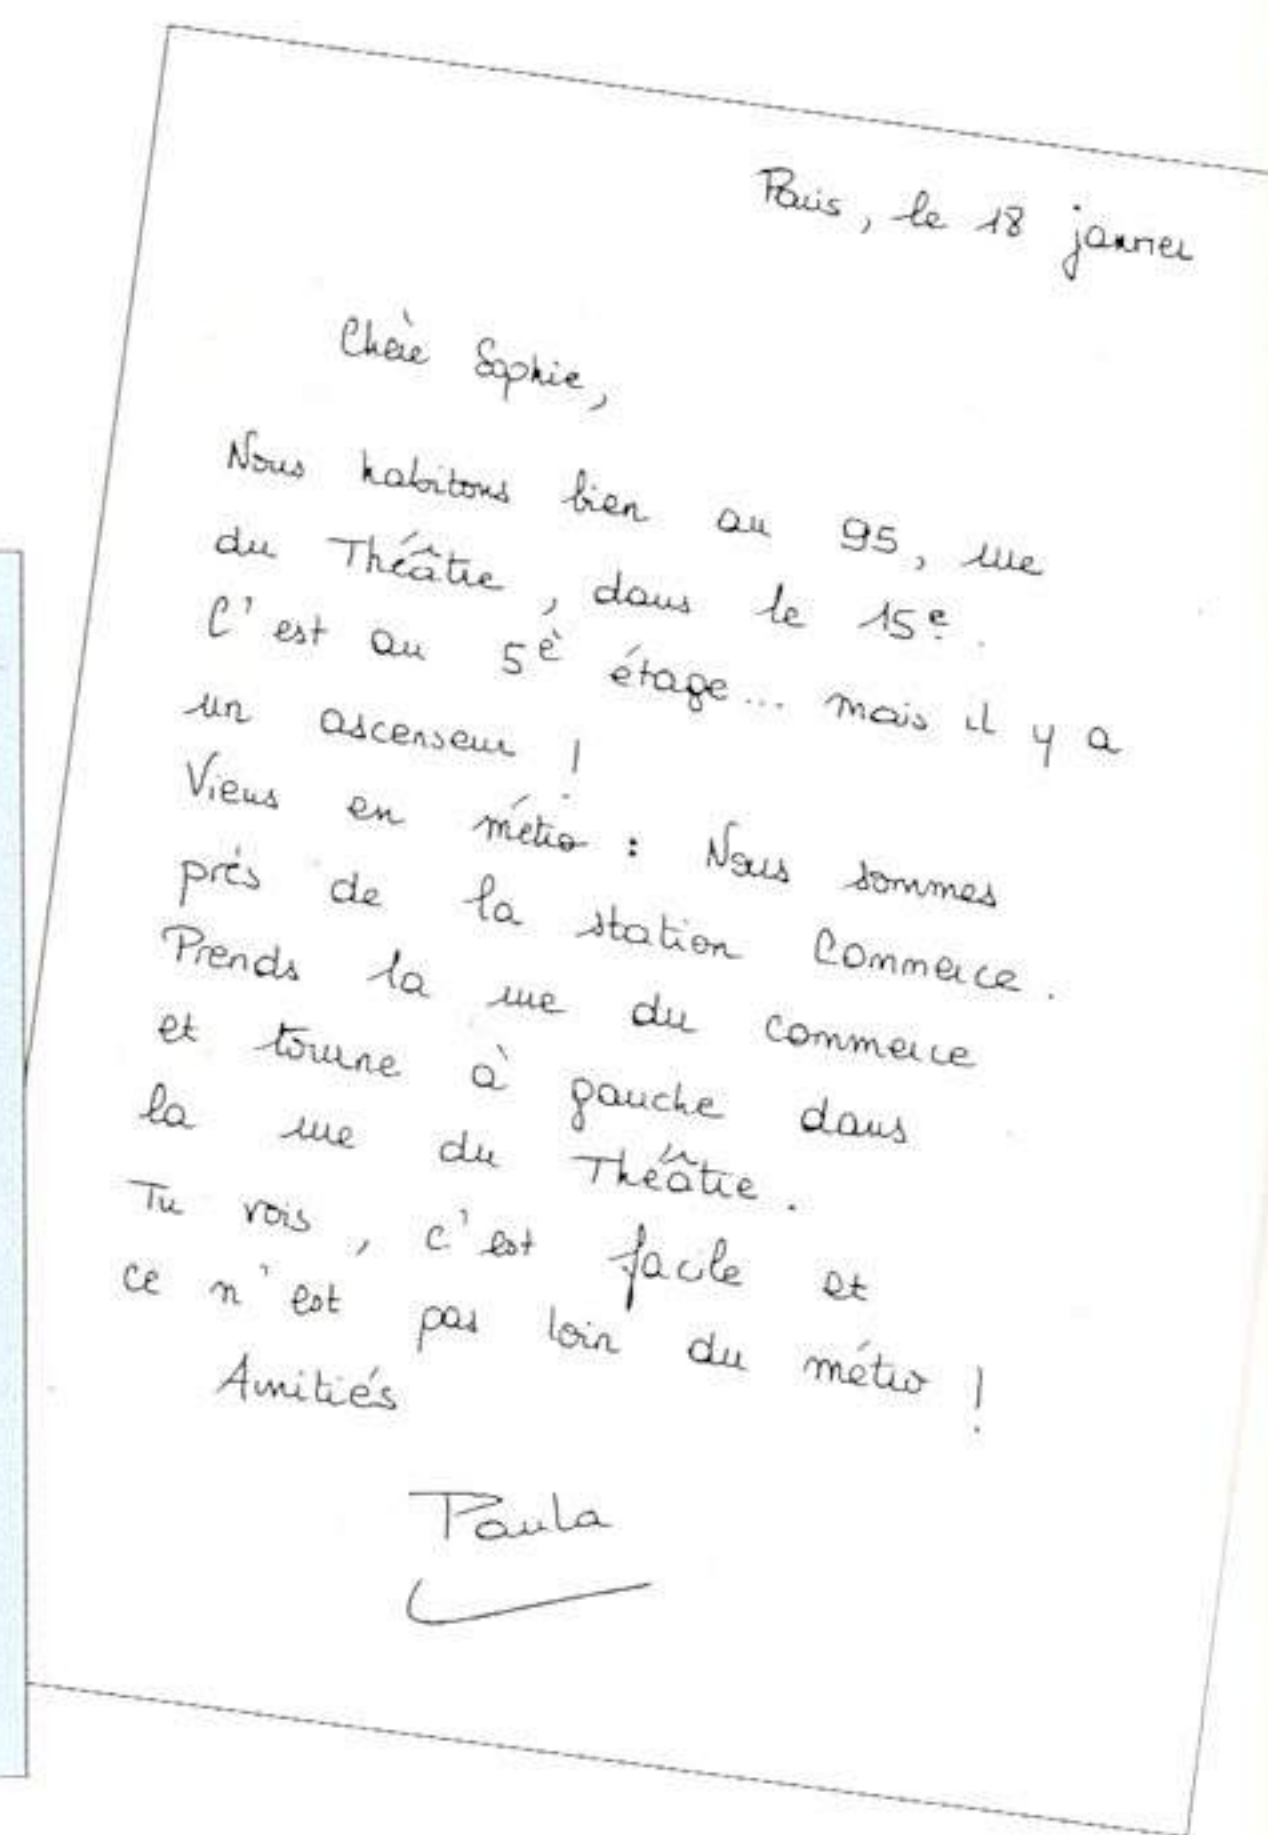 Paris, le 18 janvier
Chère Sophie,
Nous habitons bien au 95, rue
du Théâtre, dans le 15e.
C'est au 5è étage... mais il y a
un ascenseur !
Viens en métro : Nous sommes
près de la station Commerce.
Prends la rue du commerce
et tourne à gauche dans
la rue du Théâtre.
Tu vois, c'est facile et
ce n'est pas loin du métro !
Amitiés
Paula